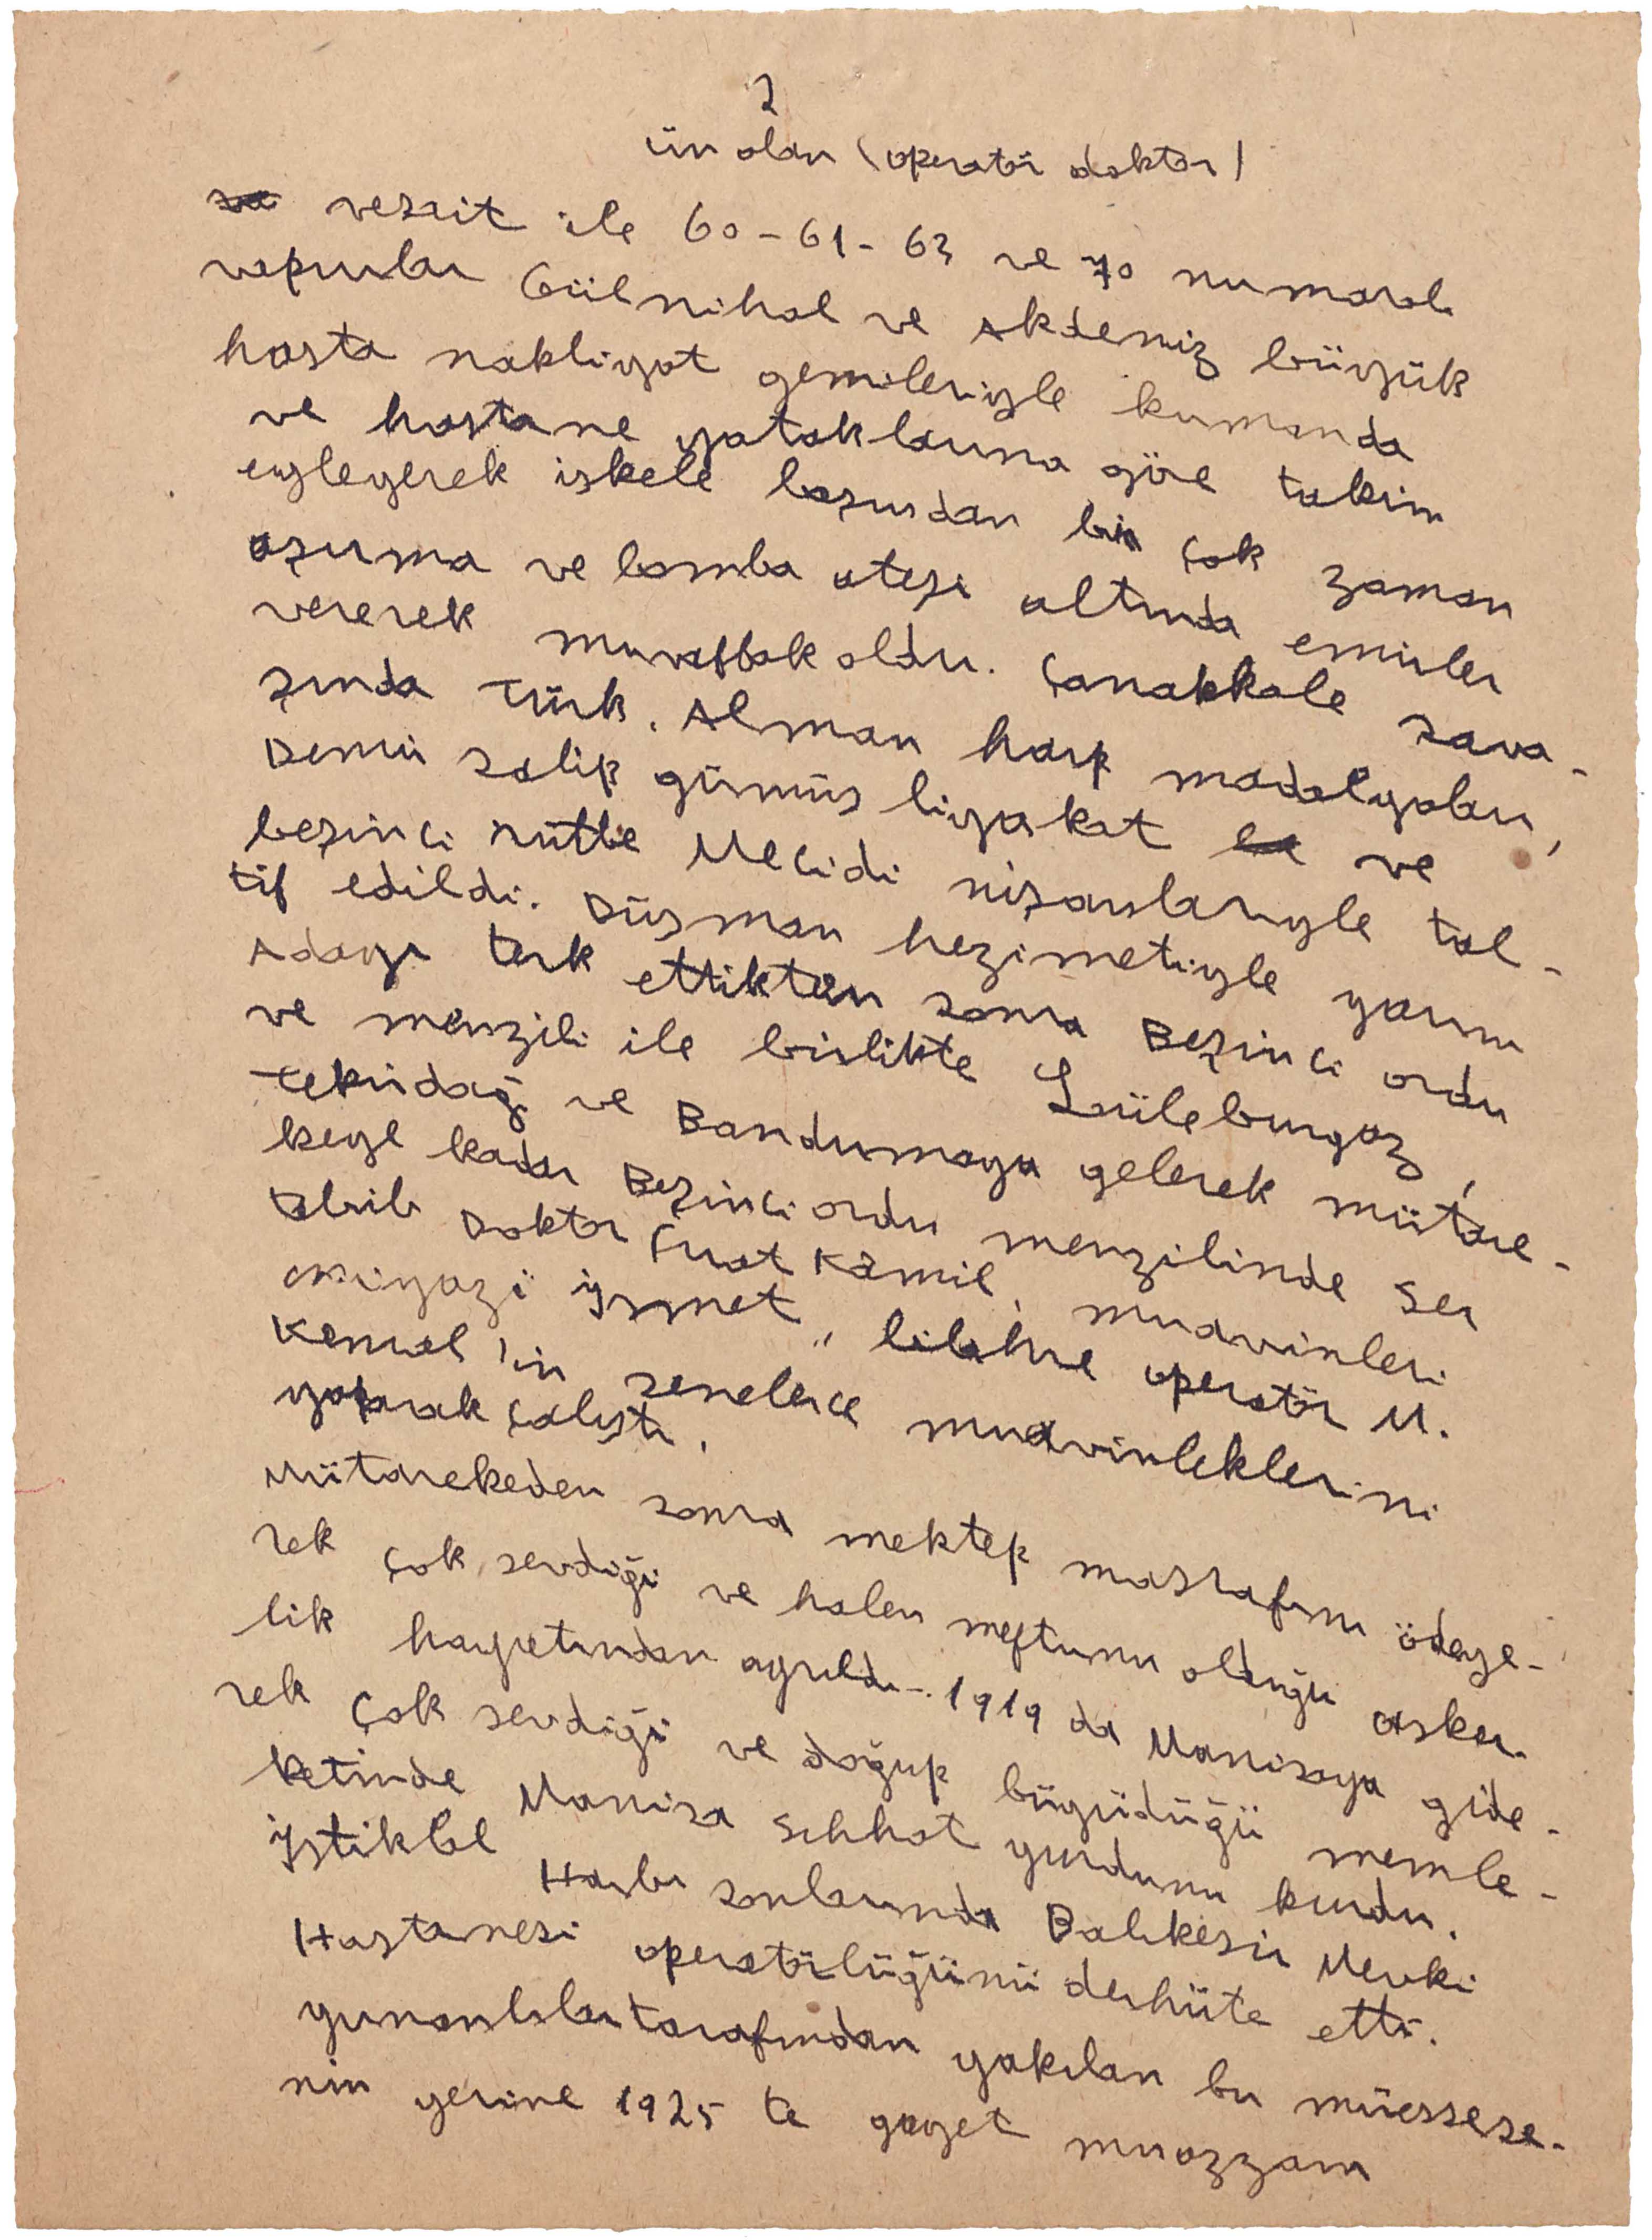 2
ün alan (operatör doktor)
vesait ile 60-61-63 ve 70 numaralı
vapurları Gülnihal ve Akdeniz büyük
hasta nakliyat gemileriyle kumanda
ve hastane yataklarına göre taksim
eyleyerek iskele başından bir çok zaman
aşırma ve bomba ateşi altında emirler
vererek muvaffak oldu. Çanakkale sava-
şında Türk. Alman harp madalyaları,
Demir salip gümüş liyakat ve
beşinci rütbe Mecidi nişanlarıyle tal-
tif edildi. Düşman hezimetiyle yarım
Adayı terk ettikten sonra Beşinci ordu
ve menzili ile birlikte Lüleburgaz,
Tekirdağ ve Bandırmaya gelerek mütare-
keye kadar Beşinci ordu menzilinde Ser
tabib Doktor Fuat Kâmil, muavinleri
Niyazi İsmet,, bilahre operatör M.
Kemal'in senelerce muavinleklerini
yaparak çalıştı.
Mütarekeden sonra mektep masrafını ödeye-
rek çok sevdiği ve halen meftunu olduğu asker-
lik hayatından ayrıldı-. 1919 da Manisaya gide-
rek çok sevdiği ve doğup büyüdüğü memle-
ketinde Manisa Sıhhat yurdunu kurdu.
İstiklal Harbı sonlarında Balıkesir Mevki
Hastanesi operatörlüğünü derhüte etti.
yunanlılar tarafından yakılan bu müessese-
nin yerine 1925 te gayet muazzam